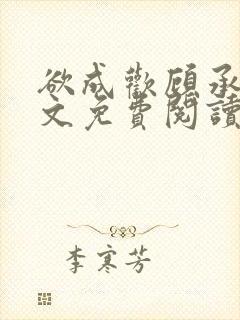 欲成歡顧承
文免費閱讀
李寒芳